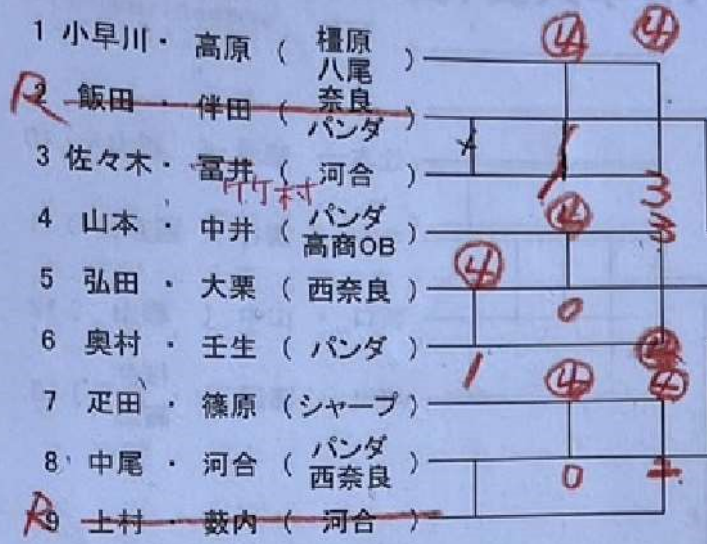 ④ ④
1 小早川・高原(橿原 八尾)
R 2 飯田・伴田(奈良 パンダ)
3 佐々木・冨井(河合)
竹村
1 3
4 山本・中井(パンダ 高商OB) ④ 3
5 弘田・大栗(西奈良) ④ 0
6 奥村・壬生(パンダ) 1 ④
7 疋田・篠原(シャープ) ④ ④
8 中尾・河合(パンダ 西奈良) 0
R 9 上村・藪内(河合)